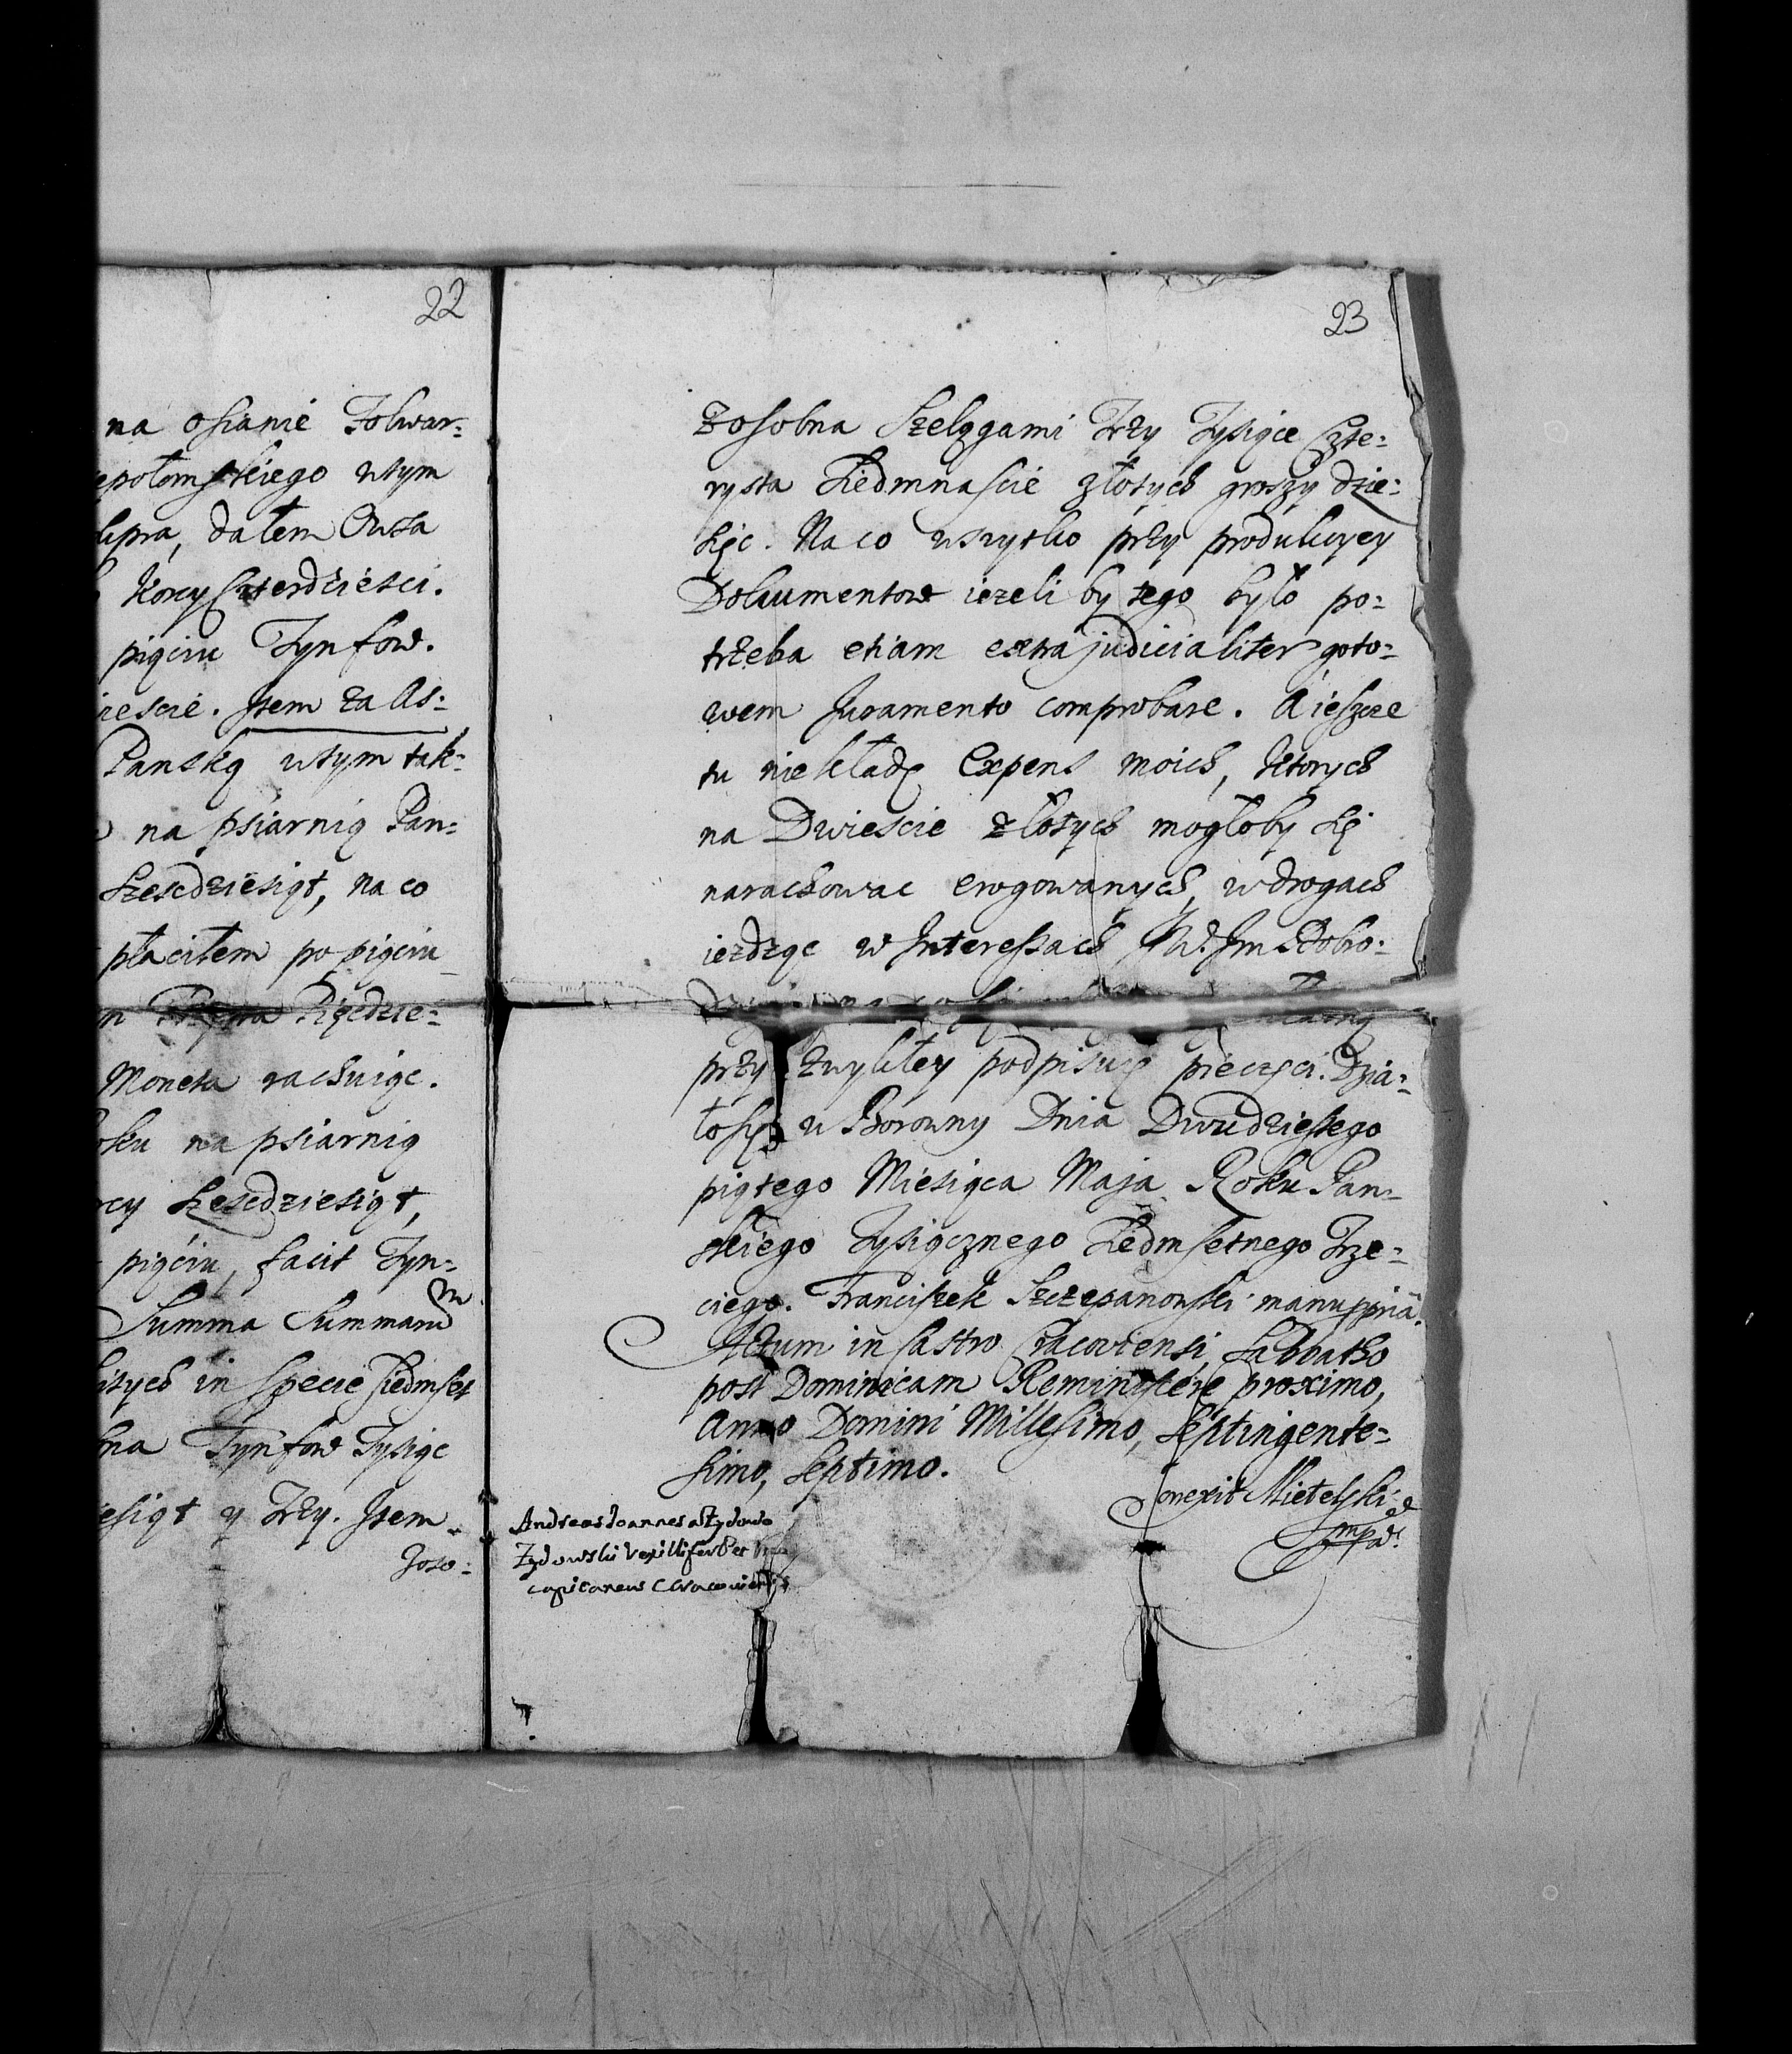 22
na osianie Folwar=
epołomskiego w tym
lipra, dałem Owsa
Korcy Czterdziesci.
pięciu Tynfow.
iescie. Item za As=
Panską w tym tak=
na psiarnią Pan=
Szescdziesiąt, na co
płaciłem po pięciu
Pięcdzie=
Moneta rachuiąc.
oku na psiarnią
rcy Szescdziesiąt,
pięciu, facit Tyn=
Summa Summarum
itych in Specie siedmset
bna Tynfow Tysiąc
esiąt y Trzy. Item
Zoso=
23
Zosobna Szelągami Trzy Tysiące Czte=
rysta Siedmnascie złotych groszy dzie=
sięc. Na co wszytko przy produkcyey
Dokumentow ieżeli by tego było po=
trzeba etiam extrajudicialiter goto=
wem Juramento comprobare. A ieszcze
tu niekładę Expens moich, ktorych
na Dwiescie złotych mogłoby się
narachowac erogowanych, w drogach
iezdząc w Interessach JW. Jm Dobro=
przy zwykłey podpisuię pieczęci. Dzia=
łosię w Borowny Dnia Dwudziestego
piątego Miesiąca Maja Roku Pan=
skiego Tysiącznego Siedmsetnego Trze=
ciego. Franciszek Szczepanowski manu ppria.
Actum in Castro Cracoviensi Sabbatho
post Dominicam Reminiscere proximo,
Anno Domini Millesimo, Septingente=
simo, Septimo.
Conexit Mietelski
mpd.
Andreas Joannes a Zydowo
Zydowski Vexillifer et
capitaneus Cracoviensis